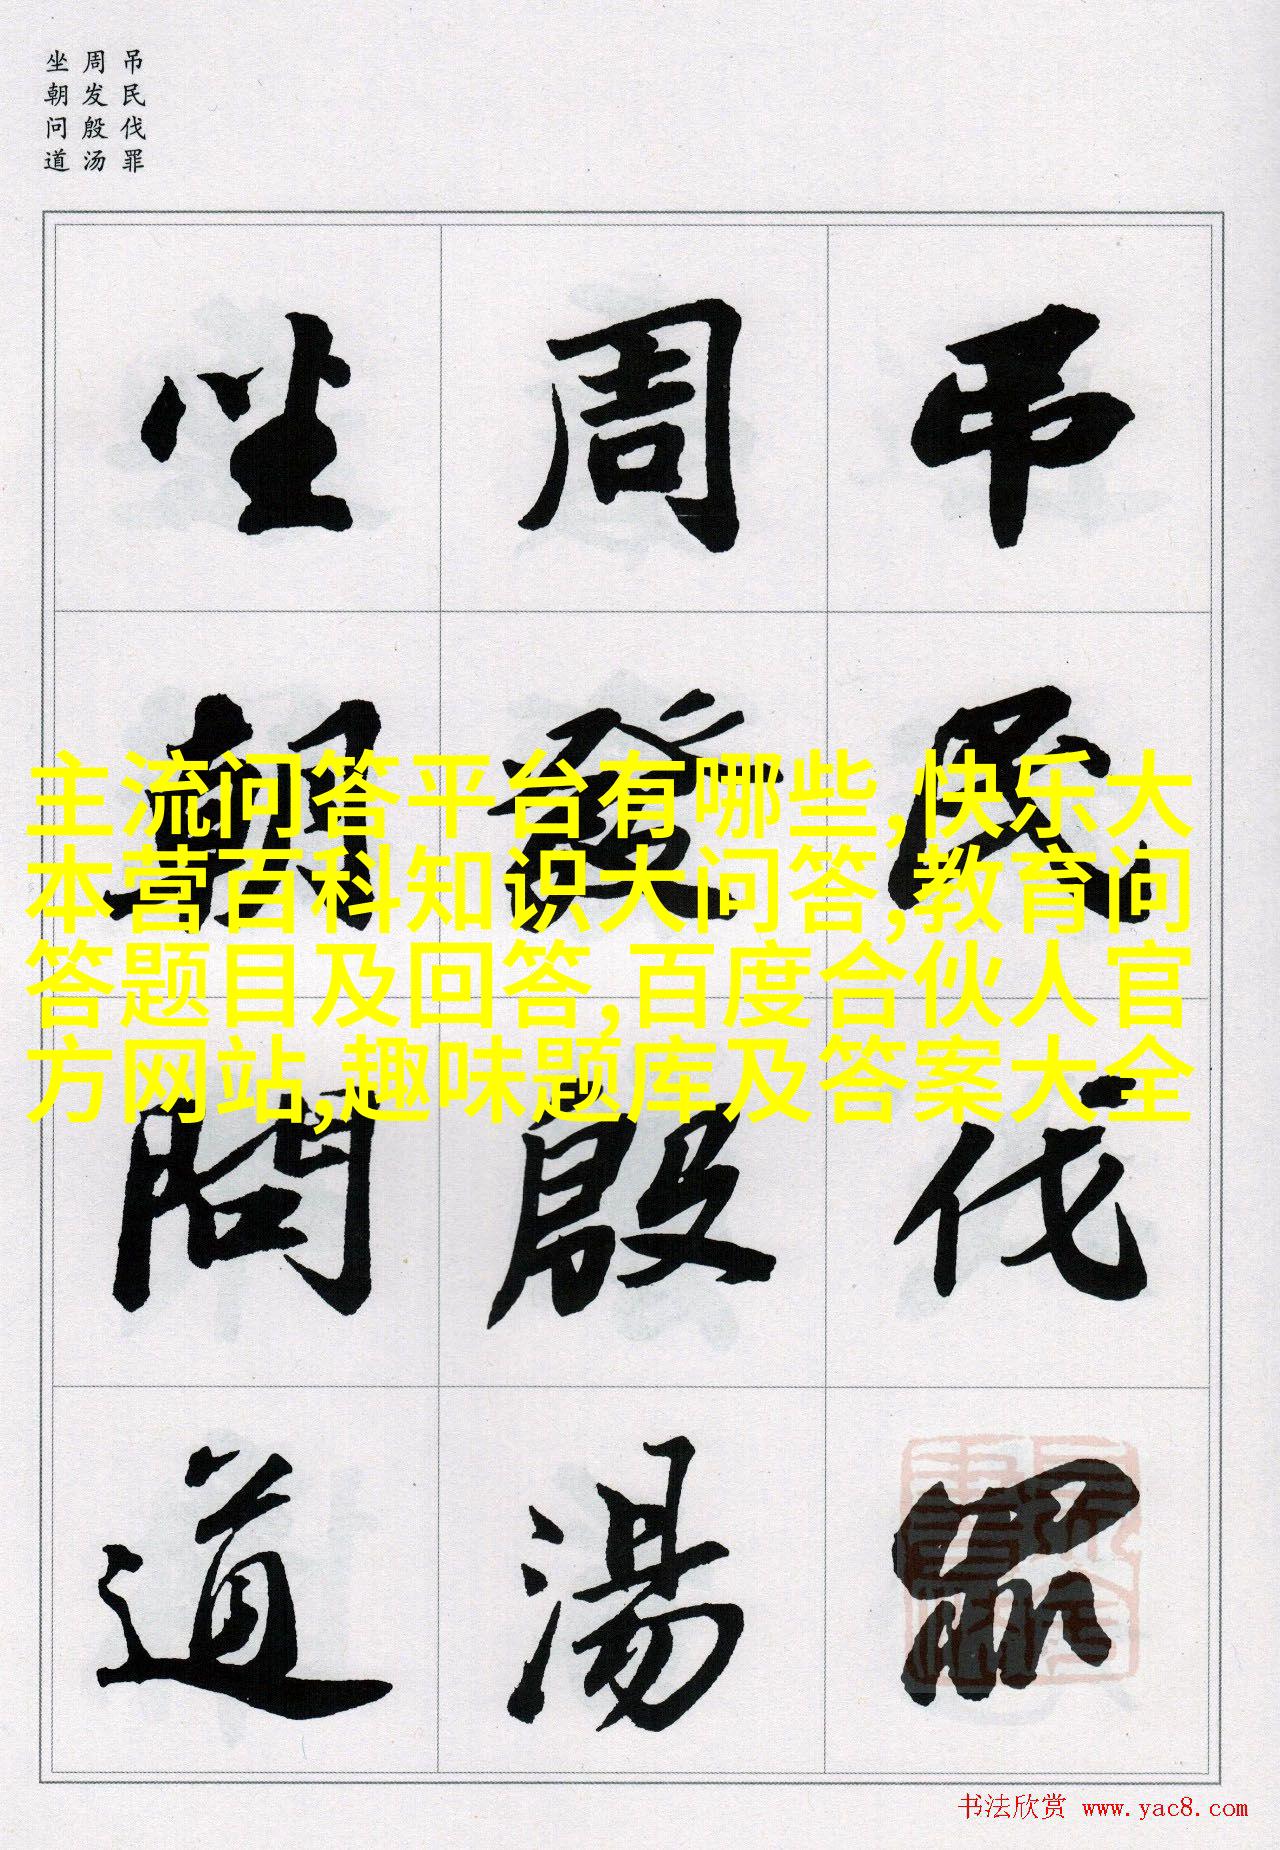 吊民伐罪
周发殷汤
坐朝问道
吊民伐罪
周發殷湯
坐朝問道
主流问答平台有哪些,快乐大
本营百科知识大问答,教育问
答题目及回答,百度合伙人官
方网站,趣味题库及答案大全
书法欣赏 www.yac8.com